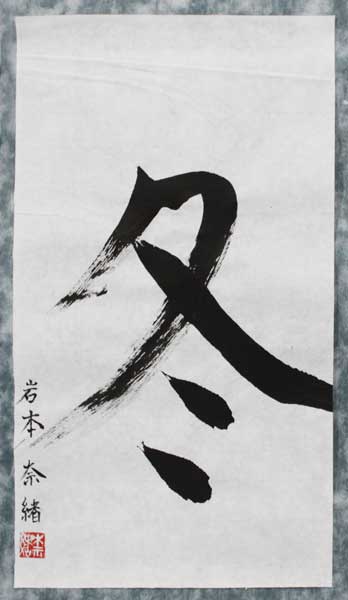 冬
岩本奈緒